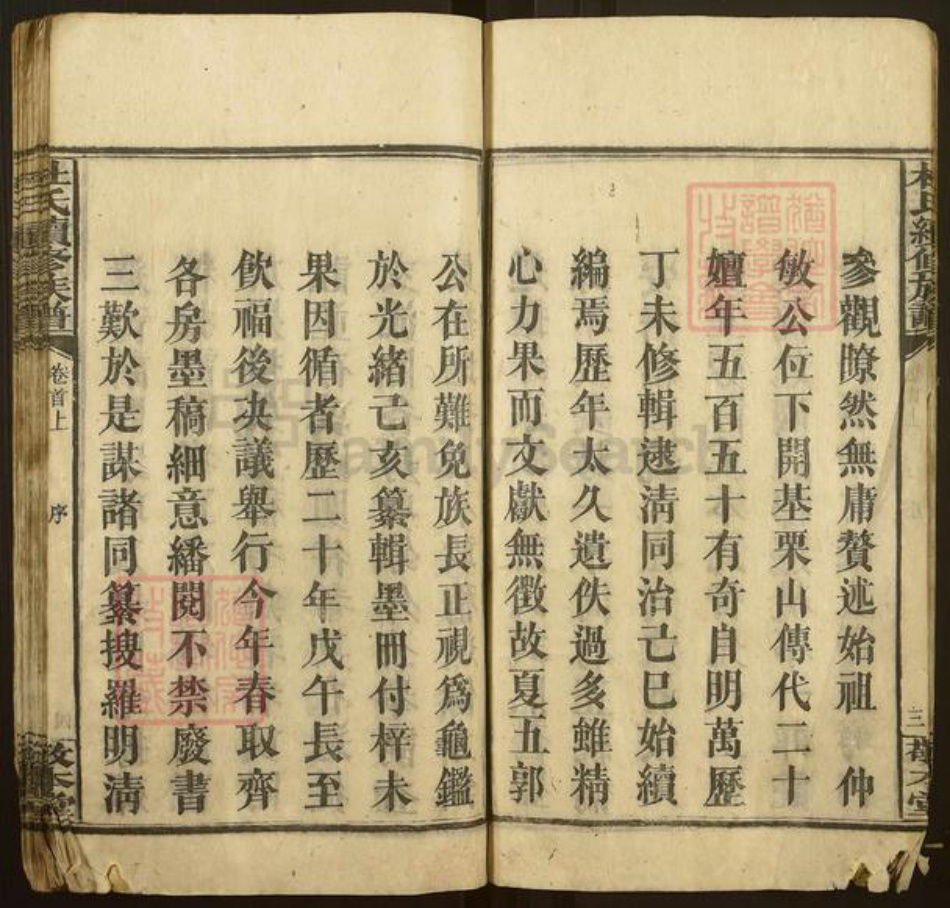 杜氏續修族譜
三
敬本堂
參觀瞭然無庸贅述始祖 仲
敏公位下開基栗山傳代二十
嬗年五百五十有奇自明萬歷
丁未修輯逮淸同治己巳始續
編焉歷年太久遺佚過多雖精
心力果而文獻無徵故夏五郭
公在所難免族長正視爲龜鑑
於光緒己亥纂輯墨冊付梓未
果因循者歷二十年戊午長至
飲福後决議舉行今年春取齊
各房墨稿細意繙閱不禁廢書
三歎於是謀諸同纂搜羅明淸
杜氏續修族譜
卷首上
序
敬本堂